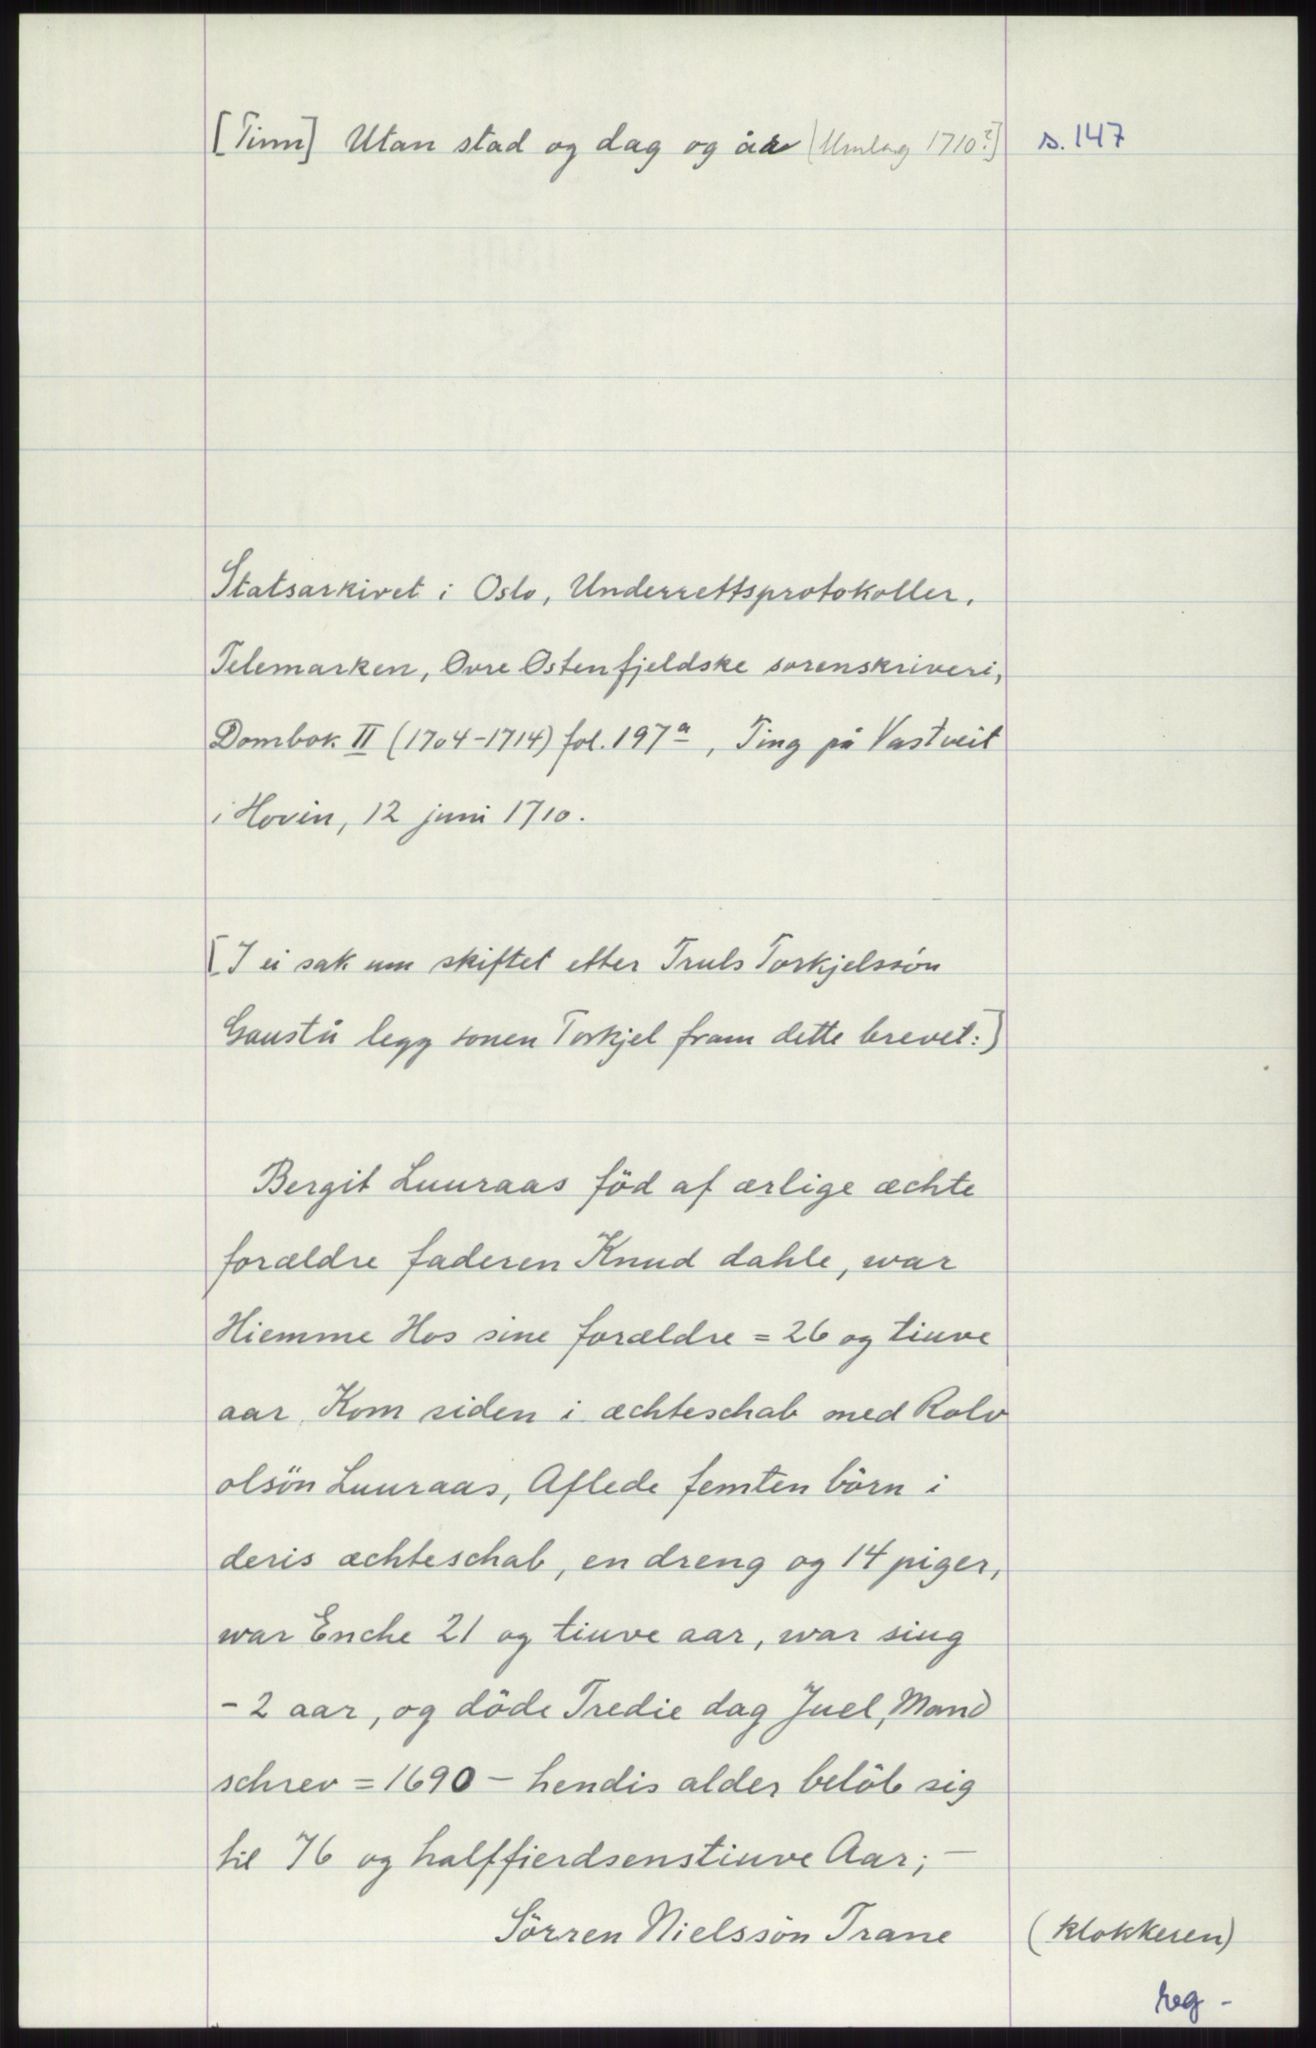 [Tinn] Utan stad og dag og år [Umlag 1710?] s. 147
Statsarkivet i Oslo, Underrettsprotokoller.
Telemarken, Øvre Østenfjeldske sorenskriveri,
Dombok II (1704-1714) fol. 197a, Ting på Vastveit
i Hovin, 12 juni 1710.
[I ei sak um skiftet etter Truls Torkjelssön
Gaustå legg sonen Torkjel fram dette brevet:]
Bergit Luuraas föd af ærlige æchte
forældre faderen Knud dahle, war
Hiemme Hos sine forældre = 26 og tiuve
aar, Kom siden i æchteschab med Rolv
olsön Luuraas, Aflede femten börn i
deris æchteschab, en dreng og 14 piger,
war Enche 21 og tiuve aar, war siug
- 2 aar, og döde Tredie dag Juel, Mand
schrev = 1690 - hendis alder belöb sig
til 76 og halffierdsenstiuve Aar; -
Sörren Nielssön Trane (klokkeren)
reg -